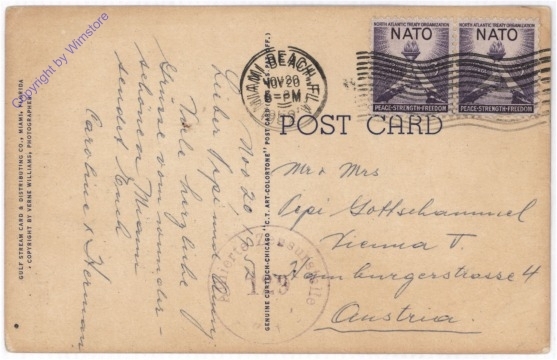 Copyright by Wimstore
GULF STREAM CARD & DISTRIBUTING CO., MIAMI, FLORIDA
• COPYRIGHT BY VERNE WILLIAMS, PHOTOGRAPHER
Nov 20, 1952
Lieber Pepi und
Viele herzliche
Grüsse vom wunder-
schönen Miami
sendet Euch
Caroline & Herman
GENUINE CURTEICH-CHICAGO "C.T. ART-COLORTONE" POST CARD
MIAMI BEACH, FLA.
NOV 20
6-PM
NORTH ATLANTIC TREATY ORGANIZATION
NATO
PEACE-STRENGTH-FREEDOM
NORTH ATLANTIC TREATY ORGANIZATION
NATO
PEACE-STRENGTH-FREEDOM
POST CARD
Mr & Mrs
Pepi Gottschammel
Vienna V
Hamburgerstrasse 4
Austria